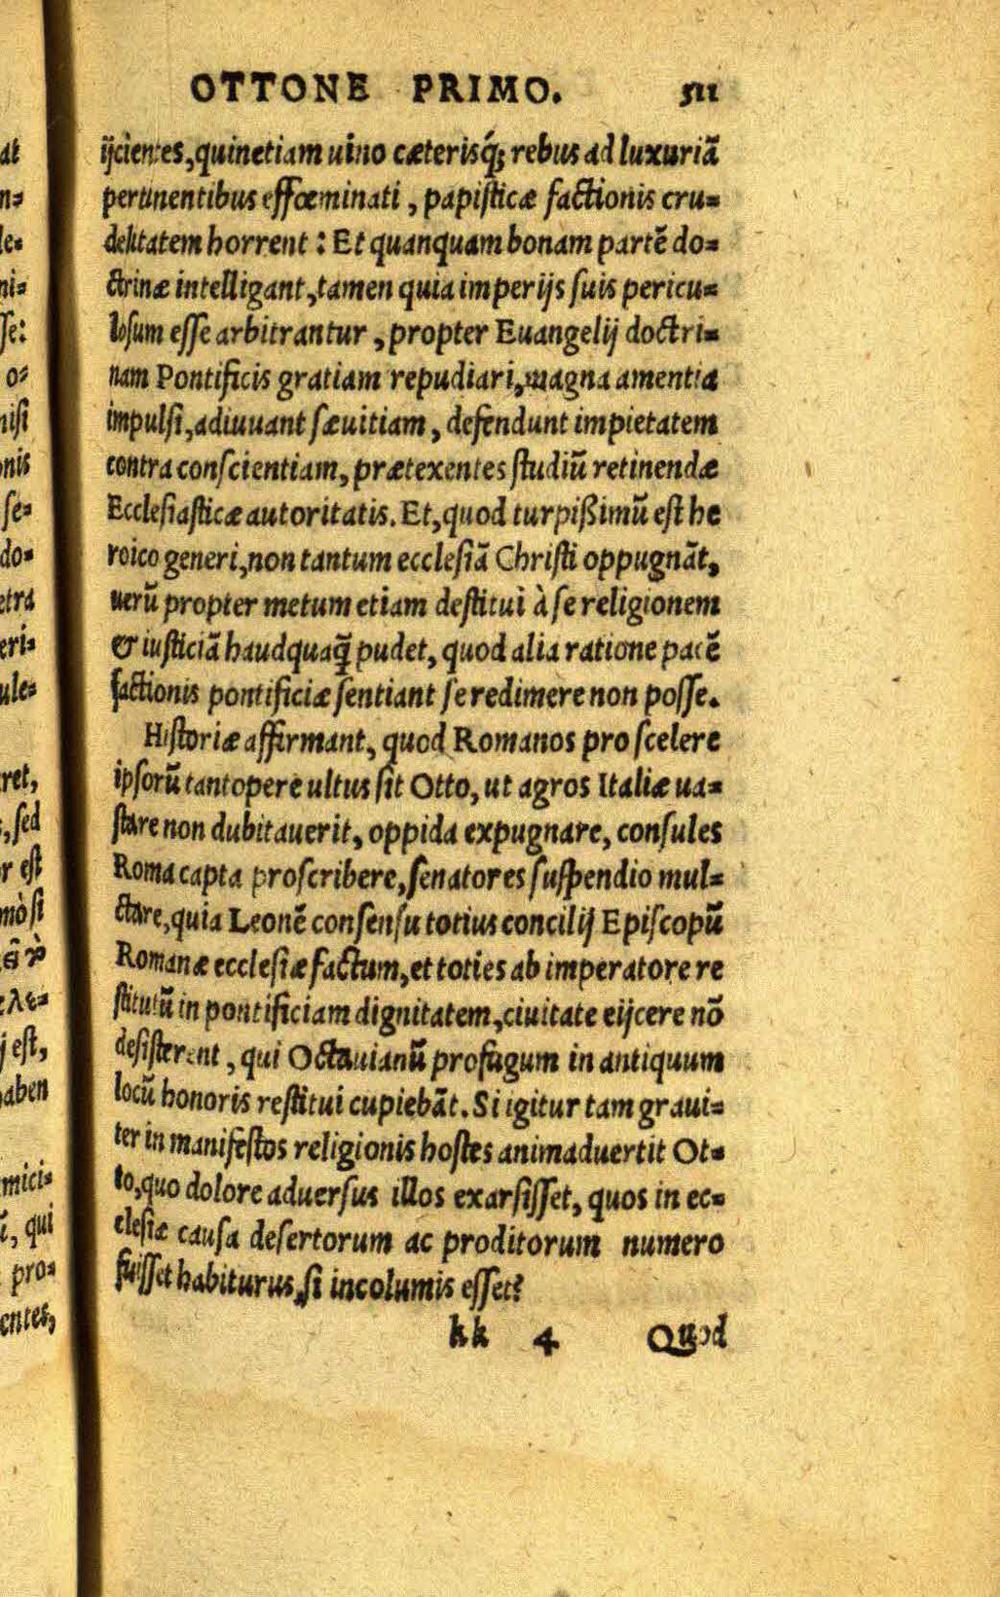 OTTONE PRIMO. 511
ijcientes, quinetiam uino cæterisq́; rebus ad luxuriã
pertinentibus effœminati, papisticæ factionis cru=
delitatem horrent: Et quanquam bonam partẽ do=
ctrinæ intelligant, tamen quia imperijs suis pericu=
losum esse arbitrantur, propter Euangelij doctri=
nam Pontificis gratiam repudiari, magna amentia
impulsi, adiuuant sæuitiam, defendunt impietatem
contra conscientiam, prætexentes studiũ retinendæ
Ecclesiasticæ autoritatis. Et, quod turpißimũ est he
roico generi, non tantum ecclesiã Christi oppugnãt,
uerũ propter metum etiam destitui à se religionem
& iusticiã haudquaq̃ pudet, quod alia ratione pacẽ
factionis pontificiæ sentiant se redimere non posse.
Historiæ affirmant, quod Romanos pro scelere
ipsorũ tantopere ultus sit Otto, ut agros Italiæ ua=
stare non dubitauerit, oppida expugnare, consules
Roma capta proscribere, senatores suspendio mul=
ctare, quia Leonẽ consensu totius concilij Episcopũ
Romanæ ecclesiæ factum, et toties ab imperatore re
stitutũ in pontificiam dignitatem, ciuitate eijcere nõ
desisterent, qui Octauianũ profugum in antiquum
locũ honoris restitui cupiebãt. Si igitur tam graui=
ter in manifestos religionis hostes animaduertit Ot=
to, quo dolore aduersus illos exarsisset, quos in ec=
clesiæ causa desertorum ac proditorum numero
fuisset habiturus, si incolumis esset?
kk 4 Quod